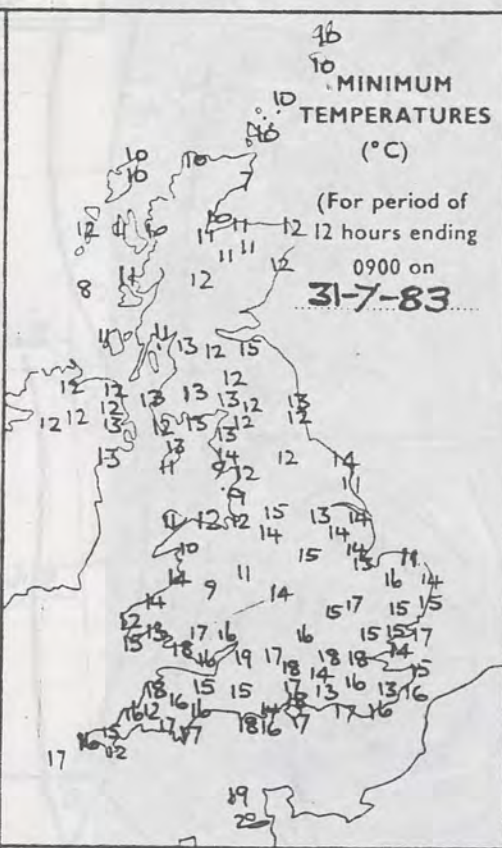 98
10
MINIMUM
TEMPERATURES
(°C)
(For period of
12 hours ending
0900 on
31-7-83
10
10
10
10
10
7
12
11
10
10
11
11
12
11
11
12
8
11
12
11
11
13
12
15
12
12
12
13
13
13
12
12
13
12
12
12
13
12
15
12
13
13
13
11
14
9
12
12
14
11
9
11
12
12
15
14
13
14
14
10
15
14
13
11
14
9
11
14
16
14
14
15
17
15
15
12
13
15
17
16
16
15
15
17
18
16
19
17
18
18
18
14
15
14
18
16
15
15
17
13
16
13
16
16
12
16
14
17
16
17
17
18
16
17
16
15
12
17
19
20